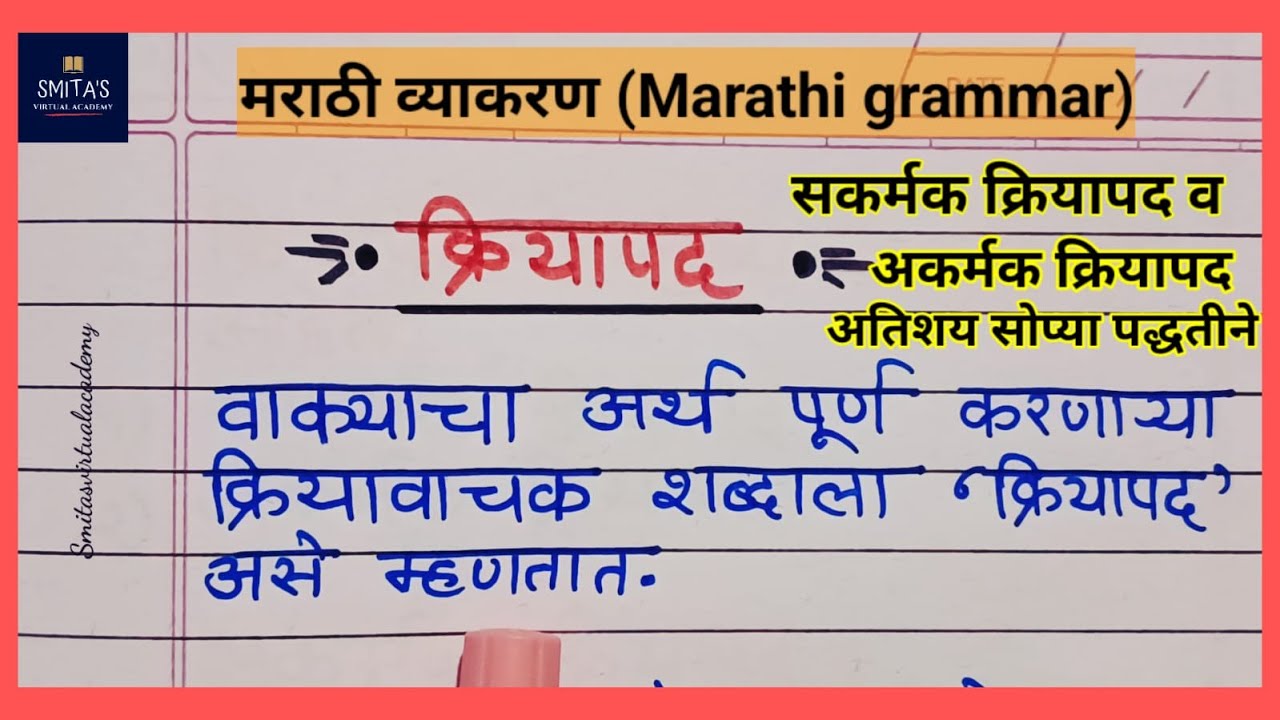 SMITA'S
VIRTUAL ACADEMY
मराठी व्याकरण (Marathi grammar)
DATE
सकर्मक क्रियापद व
अकर्मक क्रियापद
अतिशय सोप्या पद्धतीने
क्रियापद
वाक्याचा अर्थ पूर्ण करणाऱ्या
क्रियावाचक शब्दाला ‘क्रियापद’
असे म्हणतात.
Smitasvirtualacademy